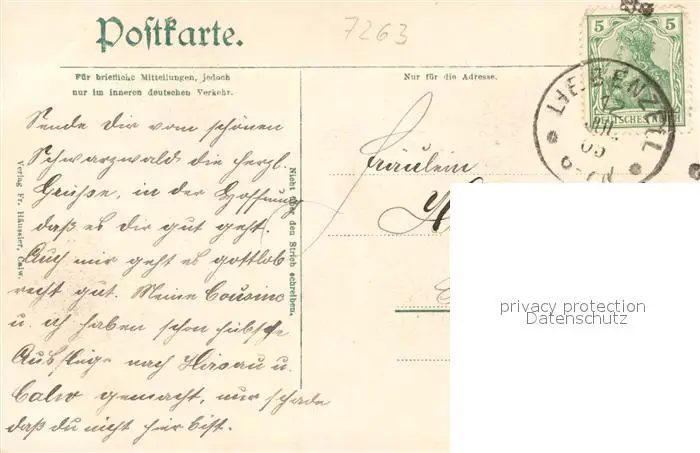 Postkarte.
7263
Für briefliche Mitteilungen, jedoch
nur im inneren deutschen Verkehr.
Nur für die Adresse.
5 5
DEUTSCHES
LIEBENZELL
05
Sende dir vom schönen
Schwarzwald die herzl.
Grüße, in der Hoffnung
daß es dir gut geht.
Auch mir geht es gottlob
recht gut. Meine Cousine
u. ich haben schon hübsche
Ausflüge nach Hirsau u.
Calw gemacht, nur schade
daß du nicht hier bist.
Verlag Fr. Häussler, Calw.
Nicht über den Strich schreiben.
Fräulein
privacy protection
Datenschutz